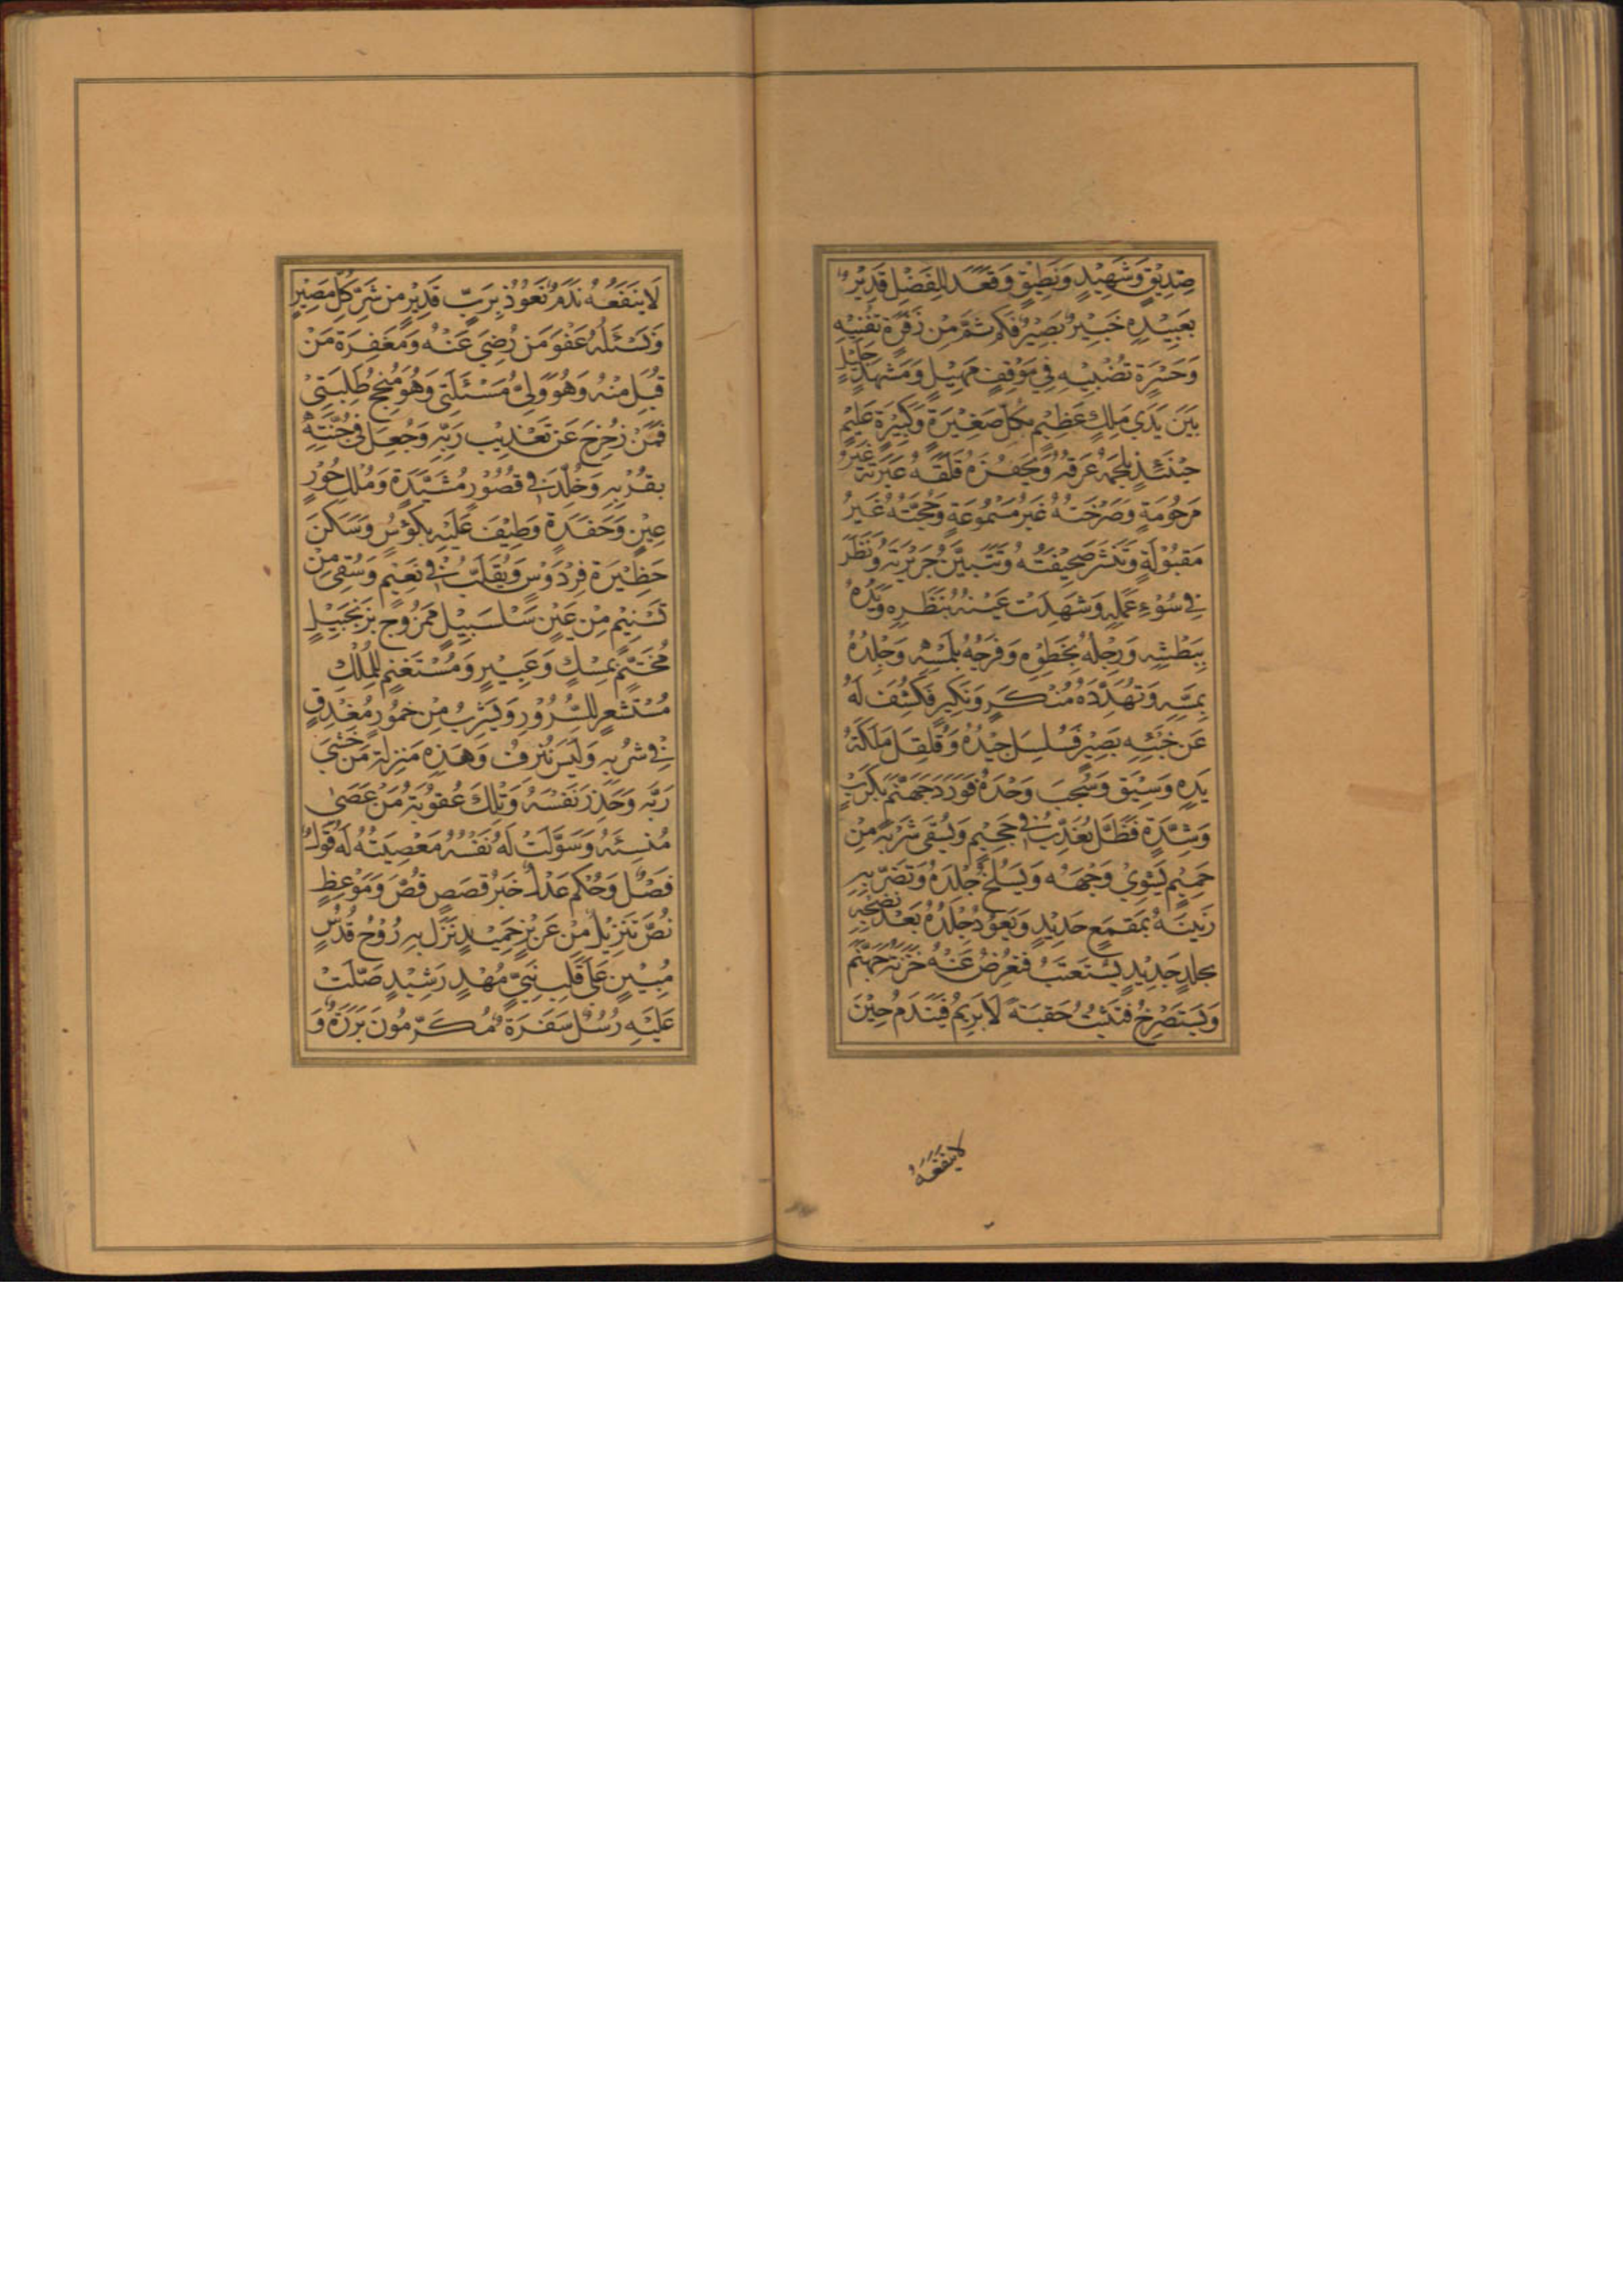 صِدِيْقٍ وَشَهِيْدٍ وَنَطِيْقٍ وَقَعَدَ لِلْفَضْلِ قَدِيْرٌ
بِعَبِيْدِهِ خَبِيْرٌ بَصِيْرٌ فَكَمْ ثَمَّ مِنْ زَفْرَةٍ تُفْنِيْهِ
وَحَسْرَةٍ تُضْنِيْهِ فِي مَوْقِفٍ مَهِيْلٍ وَمَشْهَدٍ جَلِيْلٍ
بَيْنَ يَدَي مَلِكٍ عَظِيْمٍ بِكُلِّ صَغِيْرَةٍ وَكَبِيْرَةٍ عَلِيْمٍ
حِيْنَئِذٍ يُلْجِمُهُ عَرَقُهُ وَيَحْفِزُهُ قَلَقُهُ عَبْرَتُهُ غَيْرُ
مَرْحُومَةٍ وَصَرْخَتُهُ غَيْرُ مَسْمُوعَةٍ وَحُجَّتُهُ غَيْرُ
مَقْبُوْلَةٍ وَتُنْشَرُ صَحِيْفَتُهُ وَتَتَبَيَّنُ جَرِيْرَتُهُ وَنَظَرَ
فِي سُوْءِ عَمَلِهِ وَشَهِدَتْ عَيْنُهُ بِنَظَرِهِ وَيَدُهُ
بِبَطْشِهِ وَرِجْلُهُ بِخَطْوِهِ وَفَرْجُهُ بِلَمْسِهِ وَجِلْدُهُ
بِمَسِّهِ وَتَهَدَّدَهُ مُنْكَرٍ وَنَكِيْرٍ فَكُشِفَ لَهُ
عَنْ خُبْثِهِ بَصِيْرٍ فَسُلْسِلَ جِيْدُهُ وَقُلْقِلَ مَلَكَةُ
يَدِهِ وَسِيْقَ وَسُحِبَ وَحْدَهُ فَوَرَدَ جَهَنَّمَ بِكَرْبٍ
وَشِدَّةٍ فَظَلَّ يُعَذَّبُ فِي جَحِيْمٍ وَيُسْقَى شَرْبَةً مِنْ
حَمِيْمٍ يَشْوِيْ وَجْهَهُ وَيَسْلَخُ جِلْدَهُ وَتَضْرِبُهُ
زَبِيْنَةٌ بِمِقْمَعٍ حَدِيْدٍ وَيَعُوْدُ جِلْدُهُ بَعْدَ نُضْجِهِ
بِجِلْدٍ جَدِيْدٍ يَسْتَعْتَبُ فَتُعْرِضُ عَنْهُ خَزَنَةُ جَهَنَّمَ
وَيَسْتَصْرِخُ فَيَلْبَثُ حُقْبَةً لَا يَرِيْمُ فَيَنْدَمُ حِيْنَ
لَا يَنْفَعُهُ
لَا يَنْفَعُهُ نَدَمٌ نَعُوْذُ بِرَبٍّ قَدِيْرٍ مِنْ شَرِّ كُلِّ مَصِيْرٍ
وَنَسْئَلُهُ عَفْوَ مَنْ رُضِيَ عَنْهُ وَمَغْفِرَةَ مَنْ
قُبِلَ مِنْهُ وَهُوَ وَلِيُّ مَسْئَلَتِي وَهُوَ مُنْجِحُ طَلِبَتِيْ
فَمَنْ زُحْزِحَ عَنْ تَعْذِيْبِ رَبِّهِ وَجُعِلَ فِي جَنَّتِهِ
بِقُرْبِهِ وَخُلِّدَ فِي قُصُوْرٍ مُشَيَّدَةٍ وَمُلْكِ حُوْرٍ
عِيْنٍ وَحَفَدَةٍ وَطِيْفَ عَلَيْهِ بِكُئُوْسٍ وَسَكَنَ
حَظِيْرَةَ فِرْدَوْسٍ وَيُقَلَّبُ فِي نَعِيْمٍ وَسُقِيَ مِنْ
تَسْنِيْمٍ مِنْ عَيْنٍ سَلْسَبِيْلٍ مَمْزُوْجٍ بِزَنْجَبِيْلٍ
مُخَتَّمٍ بِمِسْكٍ وَعَبِيْرٍ وَمُسْتَغْنِمٍ لِلْمُلْكِ
مُسْتَشْعِرٍ لِلسُّرُوْرِ وَيَشْرَبُ مِنْ خُمُوْرٍ مُغْدِقٍ
فِي شُرْبِهِ وَلَيْسَ يُنْزَفُ وَهَذِهِ مَنْزِلَةُ مَنْ خَشِيَ
رَبَّهُ وَحَذِرَ نَفْسَهُ وَتِلْكَ عُقُوْبَةُ مَنْ عَصَىٰ
مُنْسِئَهُ وَسَوَّلَتْ لَهُ نَفْسُهُ مَعْصِيَتَهُ لَهُ قَوْلٌ
فَصْلٌ وَحُكْمٌ عَدْلٌ خَيْرُ قَصَصٍ قُصَّ وَمَوْعِظٍ
نُصَّ تَنْزِيْلٌ مِنْ عَزِيْزٍ حَمِيْدٍ نَزَلَ بِهِ رُوْحُ قُدُسٍ
مُبِيْنٍ عَلَى قَلْبِ نَبِيٍّ مُهْدٍ رَشِيْدٍ صَلَّتْ
عَلَيْهِ رُسُلٌ سَفَرَةٌ مُكَرَّمُونَ بَرَرَةٌ وَ